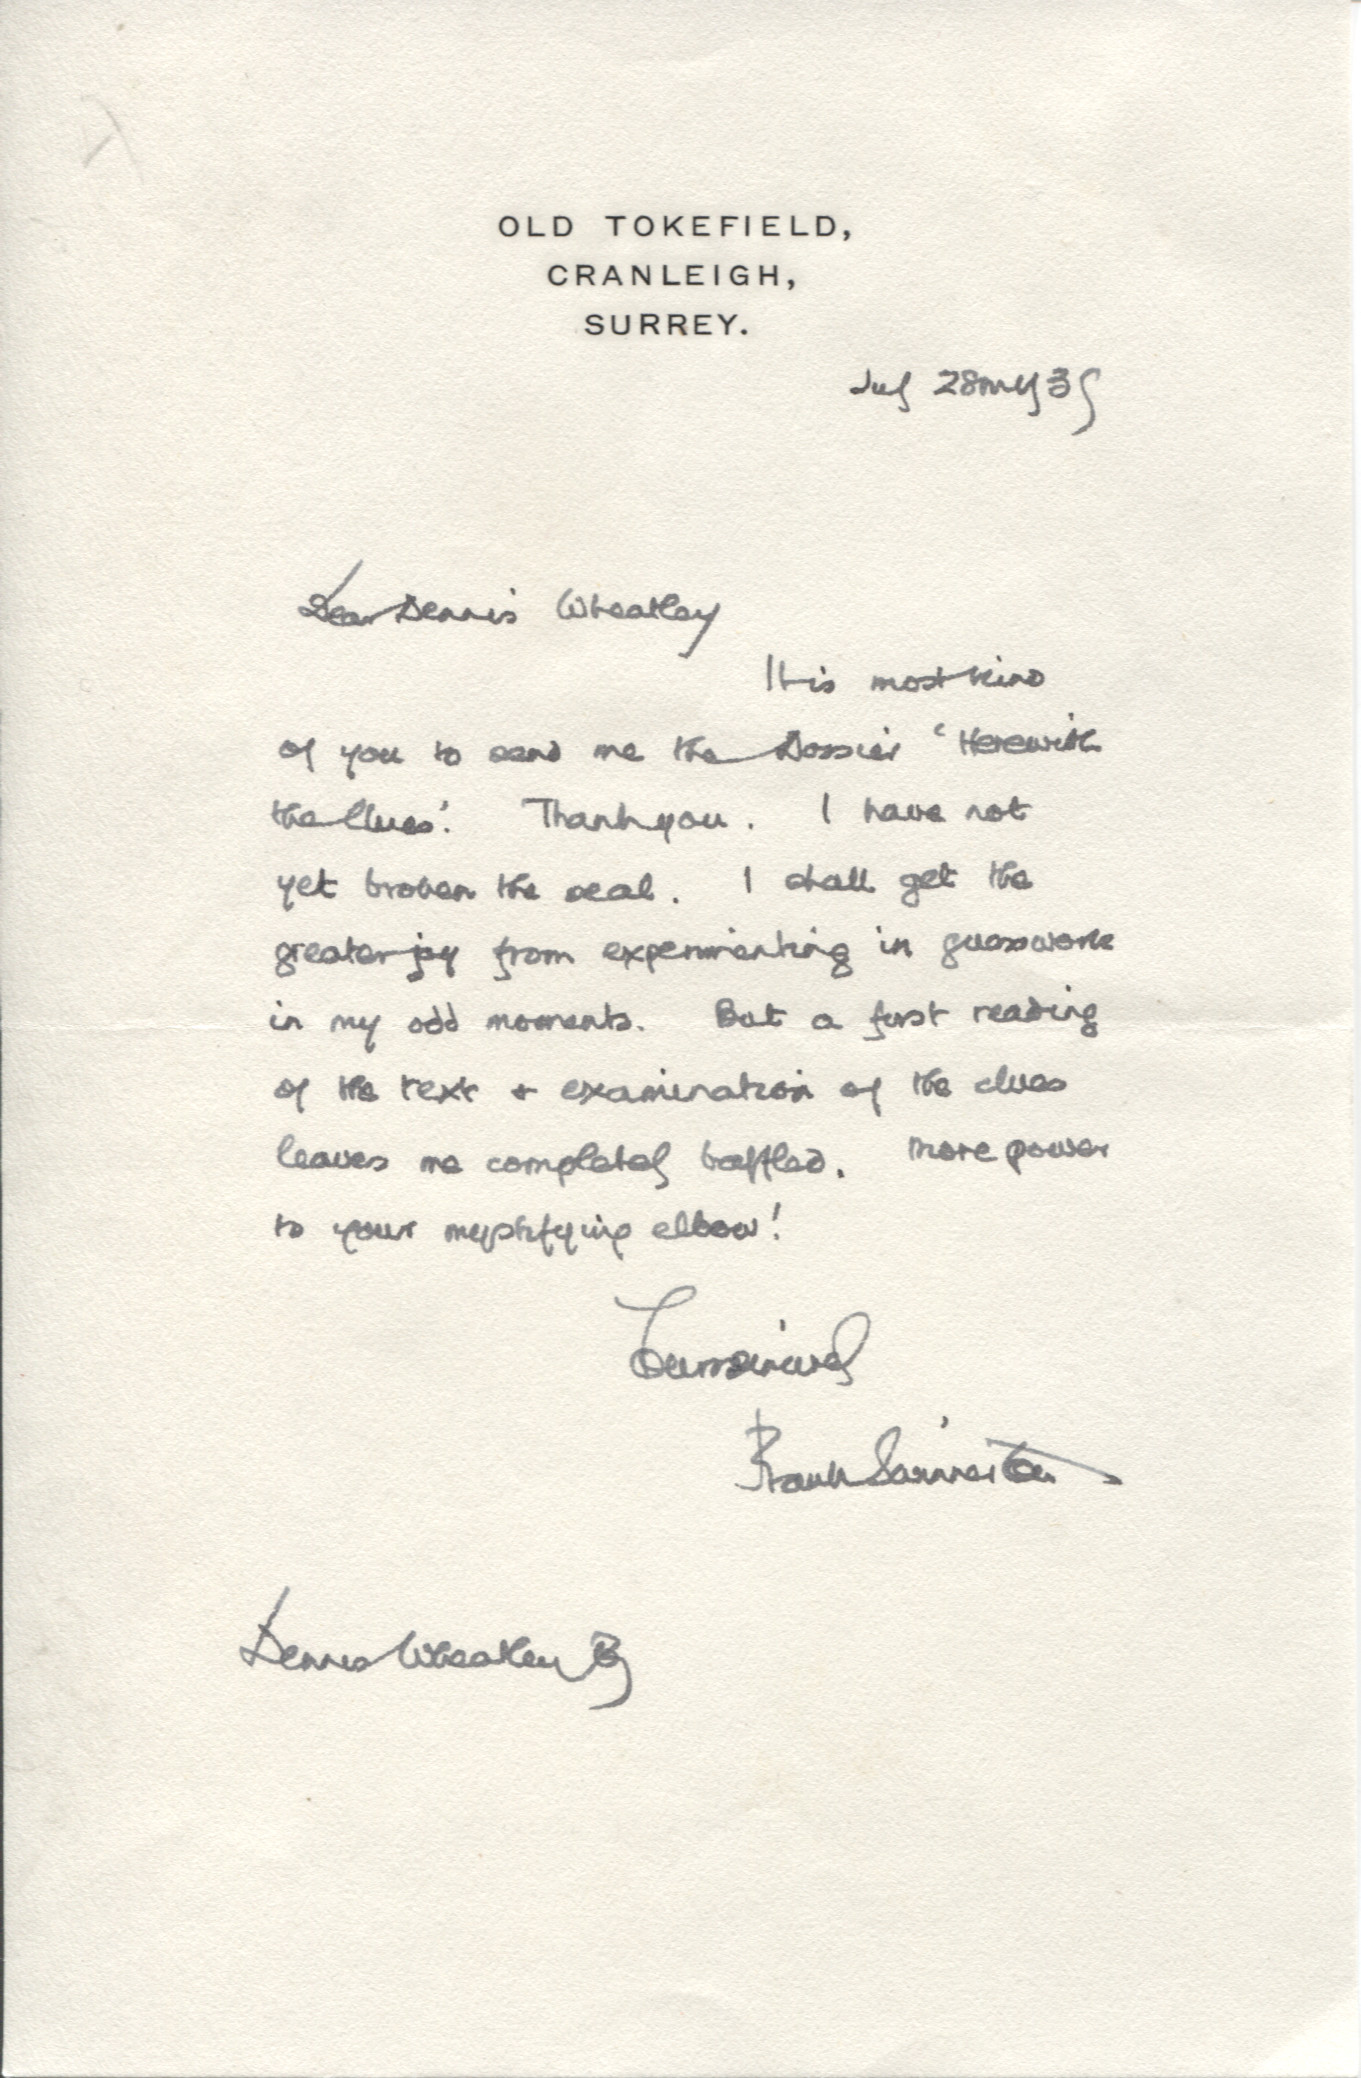 OLD TOKEFIELD,
CRANLEIGH,
SURREY.
Dear Dennis Wheatley
It is most kind
of you to send me the Dossier 'Herewith
the Clues'. Thank you. I have not
yet broken the seal. I shall get the
greater joy from experimenting in guesswork
in my odd moments. But a first reading
of the text + examination of the clues
leaves me completely baffled. More power
to your mystifying elbow!
Yours sincerely
Frank Swinnerton
Dennis Wheatley Esq